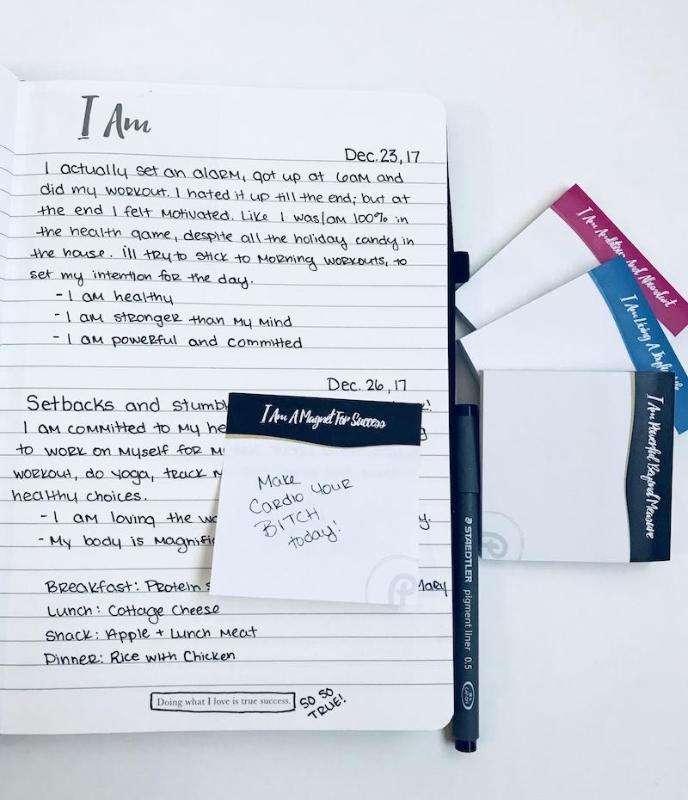 I Am
Dec. 23, 17
I actually set an alarm, got up at 6am and
did my workout. I hated it up till the end; but at
the end I felt motivated. Like I was/am 100% in
the health game, despite all the holiday candy in
the house. i'll try to stick to morning workouts, to
set my intention for the day.
- I am healthy
- I am stronger than my mind
- I am powerful and committed
Dec. 26, 17
Setbacks and
I am committed to my
to work on myself for
workout, do yoga, track
healthy choices.
- I am loving the
- My body is
Breakfast: Protein
Lunch: Cottage Cheese
Snack: Apple + Lunch Meat
Dinner: Rice with Chicken
Doing what I love is true success.
SO SO
TRUE!
I Am A Magnet For Success
Make
Cardio your
BITCH
today!
I Am And Abundant
I Am Living A
I Am Powerful Beyond Measure
STAEDTLER pigment liner 0.5